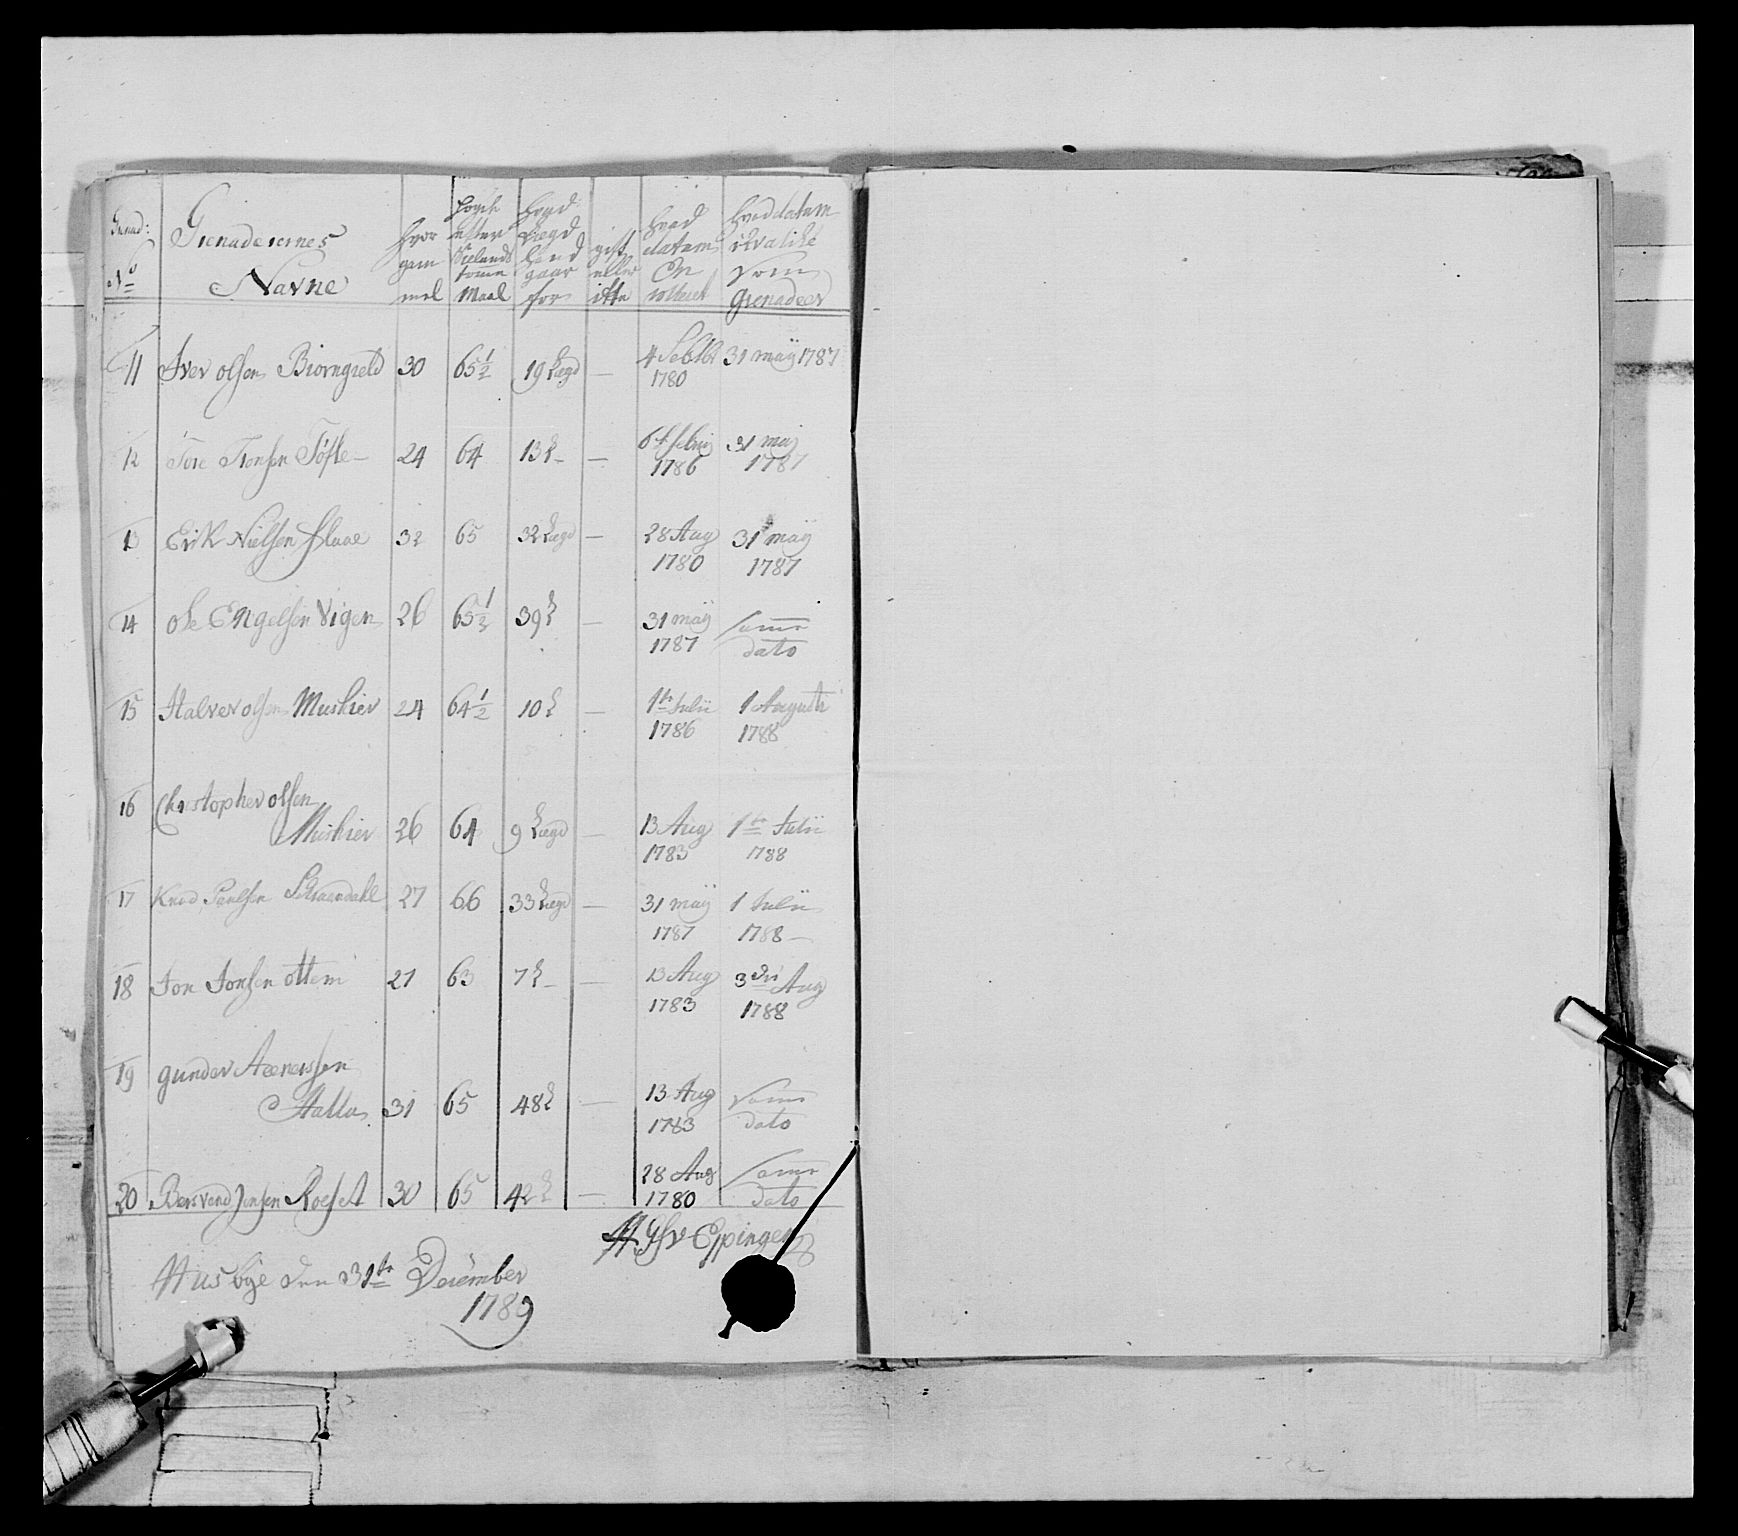 Grenad: No
Grenaderernes Navne
hvor gam mel
høyde efter Sielands tomme Maal
hvad Lægd hand gaar for
gift eller ikke
hvad datum En rolleret
hvad datum som grenadeer
11 Iver olsen Biorngield 30 65 1/2 19 Lægd — 4 Sebtbr 1780 31 maÿ 1787
12 Tore Tronsen Tøfte 24 64 13 L — 1786 31 maj 1787
13 Erik Nielsen 32 65 32 Lægd — 28 Aug 1780 31 maÿ 1787
14 ole Engelsen Vigen 26 65 1/2 39 L — 31 maÿ 1787 samme dato
15 Halver olsen Muskier 24 64 1/2 10 L — 1te Julii 1786 1 Augusti 1788
16 Christopher olsen
Muskier 26 64 9 Lægd — 13 Aug 1783 1te Julii 1788
17 Knud 27 66 33 Lægd — 31 maÿ 1787 1 Julii 1788
18 Jon Jonsen ottem 27 63 7 L — 13 Aug 1783 3die Aug 1788
19 gunder
Halla 31 65 48 L — 13 Aug 1783 samme dato
20 Bersvend Jensen Roeset 30 65 42 L — 28 Aug 1780 samme dato
Eppingen
Husbye den 31te Decémber
1789